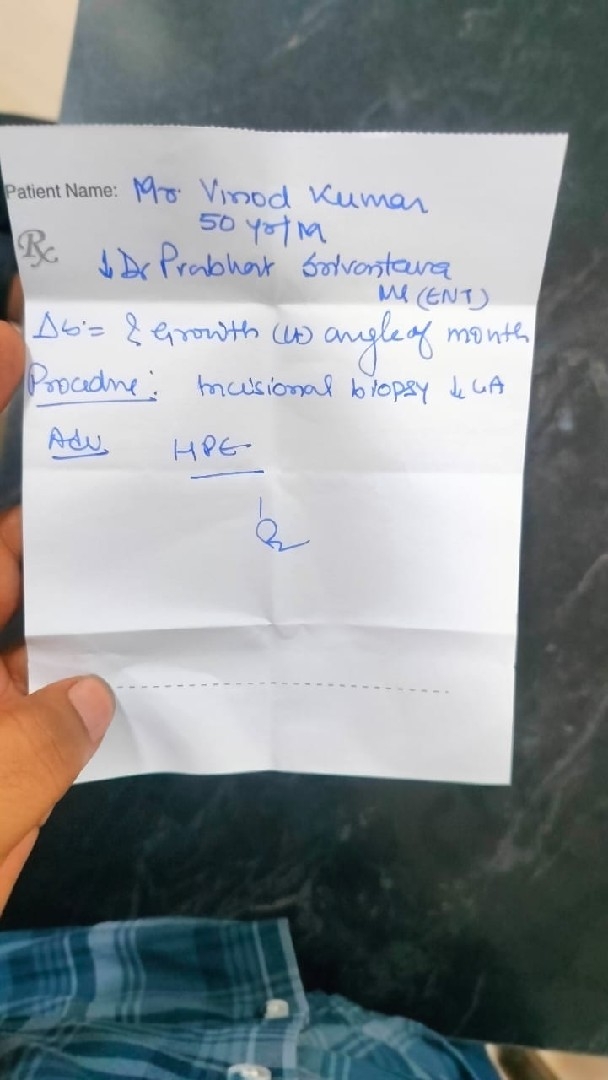 Patient Name: Mr. Vinod Kumar
50 yr/M
Rx
↓ Dr Prabhat Srivastava
MS (ENT)
Δsis = ? Growth (Lt) angle of mouth
Procedure: Incisional biopsy ↓ LA
Adv HPE